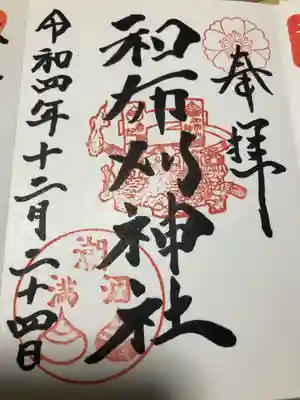 奉拝
和布刈神社
令和四年十二月二十四日
潮涸
満